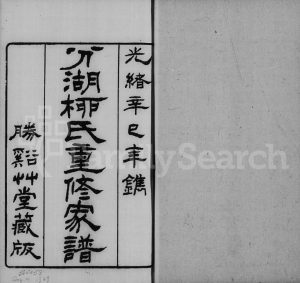 光緒辛巳年鐫
分湖柳氏重修家譜
勝谿艸堂藏版
FamilySearch